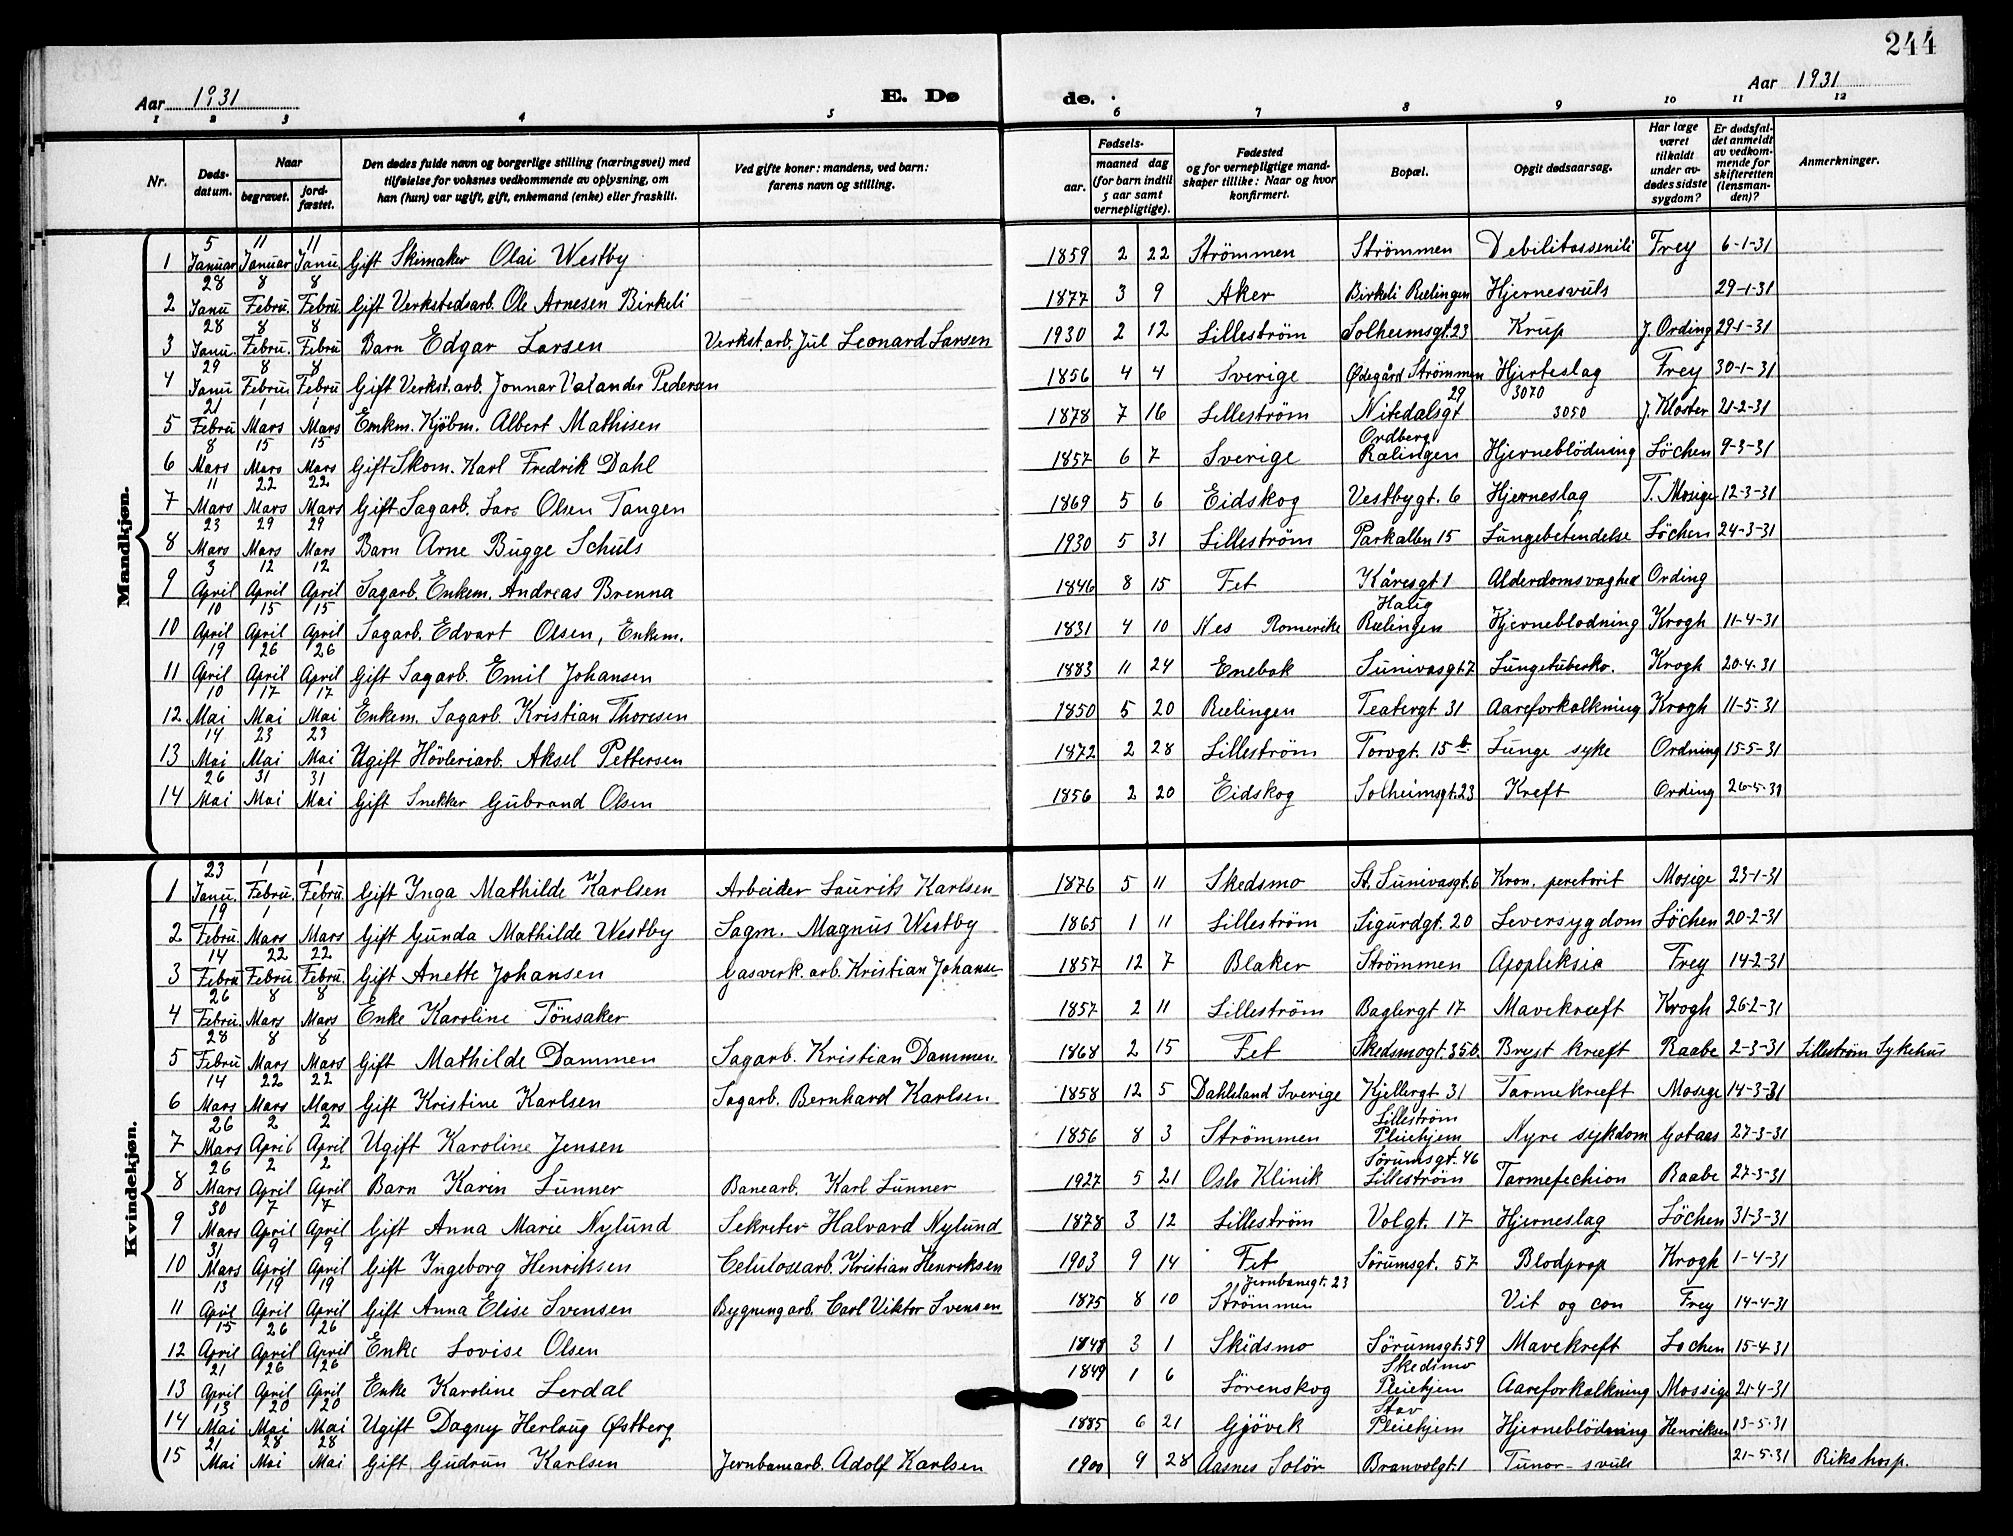 244
Aar 1931 E. Døde. Aar 1931
1 2 3 4 5 6 7 8 9 10 11 12
Nr. Dødsdatum. Naar begravet. jordfæstet. Den dødes fulde navn og borgerlige stilling (næringsvei) med tilføielse for voksnes vedkommende av oplysning, om han (hun) var ugift, gift, enkemand (enke) eller fraskilt. Ved gifte koner: mandens, ved barn: farens navn og stilling. Fødsels- aar. maaned dag (for barn indtil 5 aar samt vernepligtige). Fødested og for vernepligtige mandskaper tillike: Naar og hvor konfirmert. Bopæl. Opgit dødsaarsag. Har læge været tilkaldt under avdødes sidste sygdom? Er dødsfaldet anmeldt av vedkommende for skifteretten (lensmanden)? Anmerkninger.
Mandkjøn.
1 5 Januar 11 Januar 11 Janu. Gift Skimaker Olai Westby 1859 2 22 Strömmen Strömmen Debilitassenili Frey 6-1-31
2 28 Janu 8 Febru. 8 Febru Gift Verkstedsarb. Ole Arnesen Birkeli 1877 3 9 Aker Birkeli Rælingen Hjernesvuls 29-1-31
3 28 Janu. 8 Febru. 8 Febru Barn Edgar Larsen Verkst.arb. Jul Leonard Larsen 1930 2 12 Lilleström Solheimsgt.23 Krup J. Ording 29-1-31
4 29 Janu 8 Febru. 8 Febru Gift Verkst.arb. Jonnar Valander Pedersen 1856 4 4 Sverige Ødegård Strömmen Hjerteslag Frey 30-1-31
5 21 Febru 1 Mars 1 Mars Enkm. Kjöbm. Albert Mathisen 1878 7 16 Lilleström Nitedalsgt 29 3070 3050 J. Kloster 21-2-31
6 8 Mars 15 Mars 15 Mars Gift Skom. Karl Fredrik Dahl 1857 6 7 Sverige Ordberg Rælingen Hjerneblödning Löchen 9-3-31
7 11 Mars 22 Mars 22 Mars Gift Sagarb. Lars Olsen Tangen 1869 5 6 Eidskog Vestbygt. 6 Hjerneslag T. Mosige 12-3-31
8 23 Mars 29 Mars 29 Mars Barn Arne Bugge Schuls 1930 5 31 Lilleström Parkallen 15 Lungebetendelse Löchen 24-3-31
9 3 April 12 April 12 April Sagarb. Enkem. Andreas Brenna 1846 8 15 Fet Kåresgt 1 Alderdomsvaghed Ording
10 10 April 15 April 15 April Sagarb. Edvart Olsen, Enkem. 1831 4 10 Nes Romerike Haug Rælingen Hjerneblodning Krogh 11-4-31
11 19 April 26 April 26 April Gift Sagarb. Emil Johansen 1883 11 24 Enebak Sunivasgt 7 Lungetuberko. Krogh 20-4-31
12 10 Mai 17 Mai 17 Mai Enkem. Sagarb. Kristian Thoresen 1850 5 20 Rælingen Teatergt 31 Aareforkalkning Krogh 11-5-31
13 14 Mai 23 Mai 23 Mai Ugift Hövleriarb. Aksel Pettersen 1872 2 28 Lilleström Torvgt. 15 b Lunge syke Ordning 15-5-31
14 26 Mai 31 Mai 31 Mai Gift Snekker Gubrand Olsen 1856 2 20 Eidskog Solheimsgt.23 Kreft Ording 26-5-31
Kvindekjøn.
1 23 Janu. 1 Febru. 1 Febru. Gift Inga Mathilde Karlsen Arbeider Laurits Karlsen 1876 5 11 Skedsmo St. Sunivasgt.6 Kron. peretorit Mosige 23-1-31
2 19 Febru. 1 Mars 1 Mars Gift Gunda Mathilde Westby Sagm. Magnus Westby 1865 1 11 Lilleström Sigurdgt. 20 Leversygdom Löchen 20-2-31
3 14 Febru 22 Febru 22 Febru. Gift Anette Johansen Gasverk.arb. Kristian Johanse 1857 12 7 Blaker Strömmen Apopleksia Frey 14-2-31
4 26 Febru. 8 Mars 8 Mars Enke Karoline Tönsaker 1857 2 11 Lilleström Baglergt 17 Mavekræft Krogh 26-2-31
5 28 Febru 8 Mars 8 Mars Gift Mathilde Dammen Sagarb. Kristian Dammen. 1868 2 15 Fet Skedsmogt.35b. Bryst kræft Raabe 2-3-31 Lilleström Sykehus
6 14 Mars 22 Mars 22 Mars Gift Kristine Karlsen Sagarb. Bernhard Karlsen 1858 12 5 Dahlsland Sverige Kjellergt 31 Tarmekræft Mosige 14-3-31
7 26 Mars 2 April 2 April Ugift Karoline Jensen 1856 8 3 Strömmen Lilleström Pleiehjem Nyre sykdom Gotaas 27-3-31
8 26 Mars 2 April 2 April Barn Karin Lunner Banearb. Karl Lunner 1927 5 21 Oslo Klinik Sörumsgt. 46 Lilleström Tarmefechion Raabe 27-3-31
9 30 Mars 7 April 7 April Gift Anna Marie Nylund Sekretær Halvard Nylund 1878 3 12 Lilleström Volgt. 17 Hjerneslag Löchen 31-3-31
10 31 Mars 9 April 9 April Gift Ingeborg Henriksen Celulosearb. Kristian Henriksen 1903 9 14 Fet Sörumsgt. 57 Blodprop Krogh 1-4-31
11 13 April 19 April 19 April Gift Anna Elise Svensen Bygningarb. Carl Viktor Svensen 1875 8 10 Strömmen Jernbanegt. 23 Vit og con Frey 14-4-31
12 15 April 26 April 26 April Enke Lovise Olsen 1848 3 1 Skedsmo Sörumsgt. 59 Mavekreft Lochen 15-4-31
13 21 April 26 April 26 April Enke Karoline Lerdal 1849 1 6 Sörenskog Skedsmo Pleiehjem Aareforkalkning Mossige 21-4-31
14 13 Mai 20 Mai 20 Mai Ugift Dagny Herlaug Østberg 1885 6 21 Gjövek Stav Pleiehjem Hjerneblödning Henriksen 13-5-31
15 21 Mai 28 Mai 28 Mai Gift Gudrun Karlsen Jernbanearb. Adolf Karlsen 1900 9 28 Aasnes Solör Branvolgt.1 Tunor-svuls 21-5-31 Rikshosp.